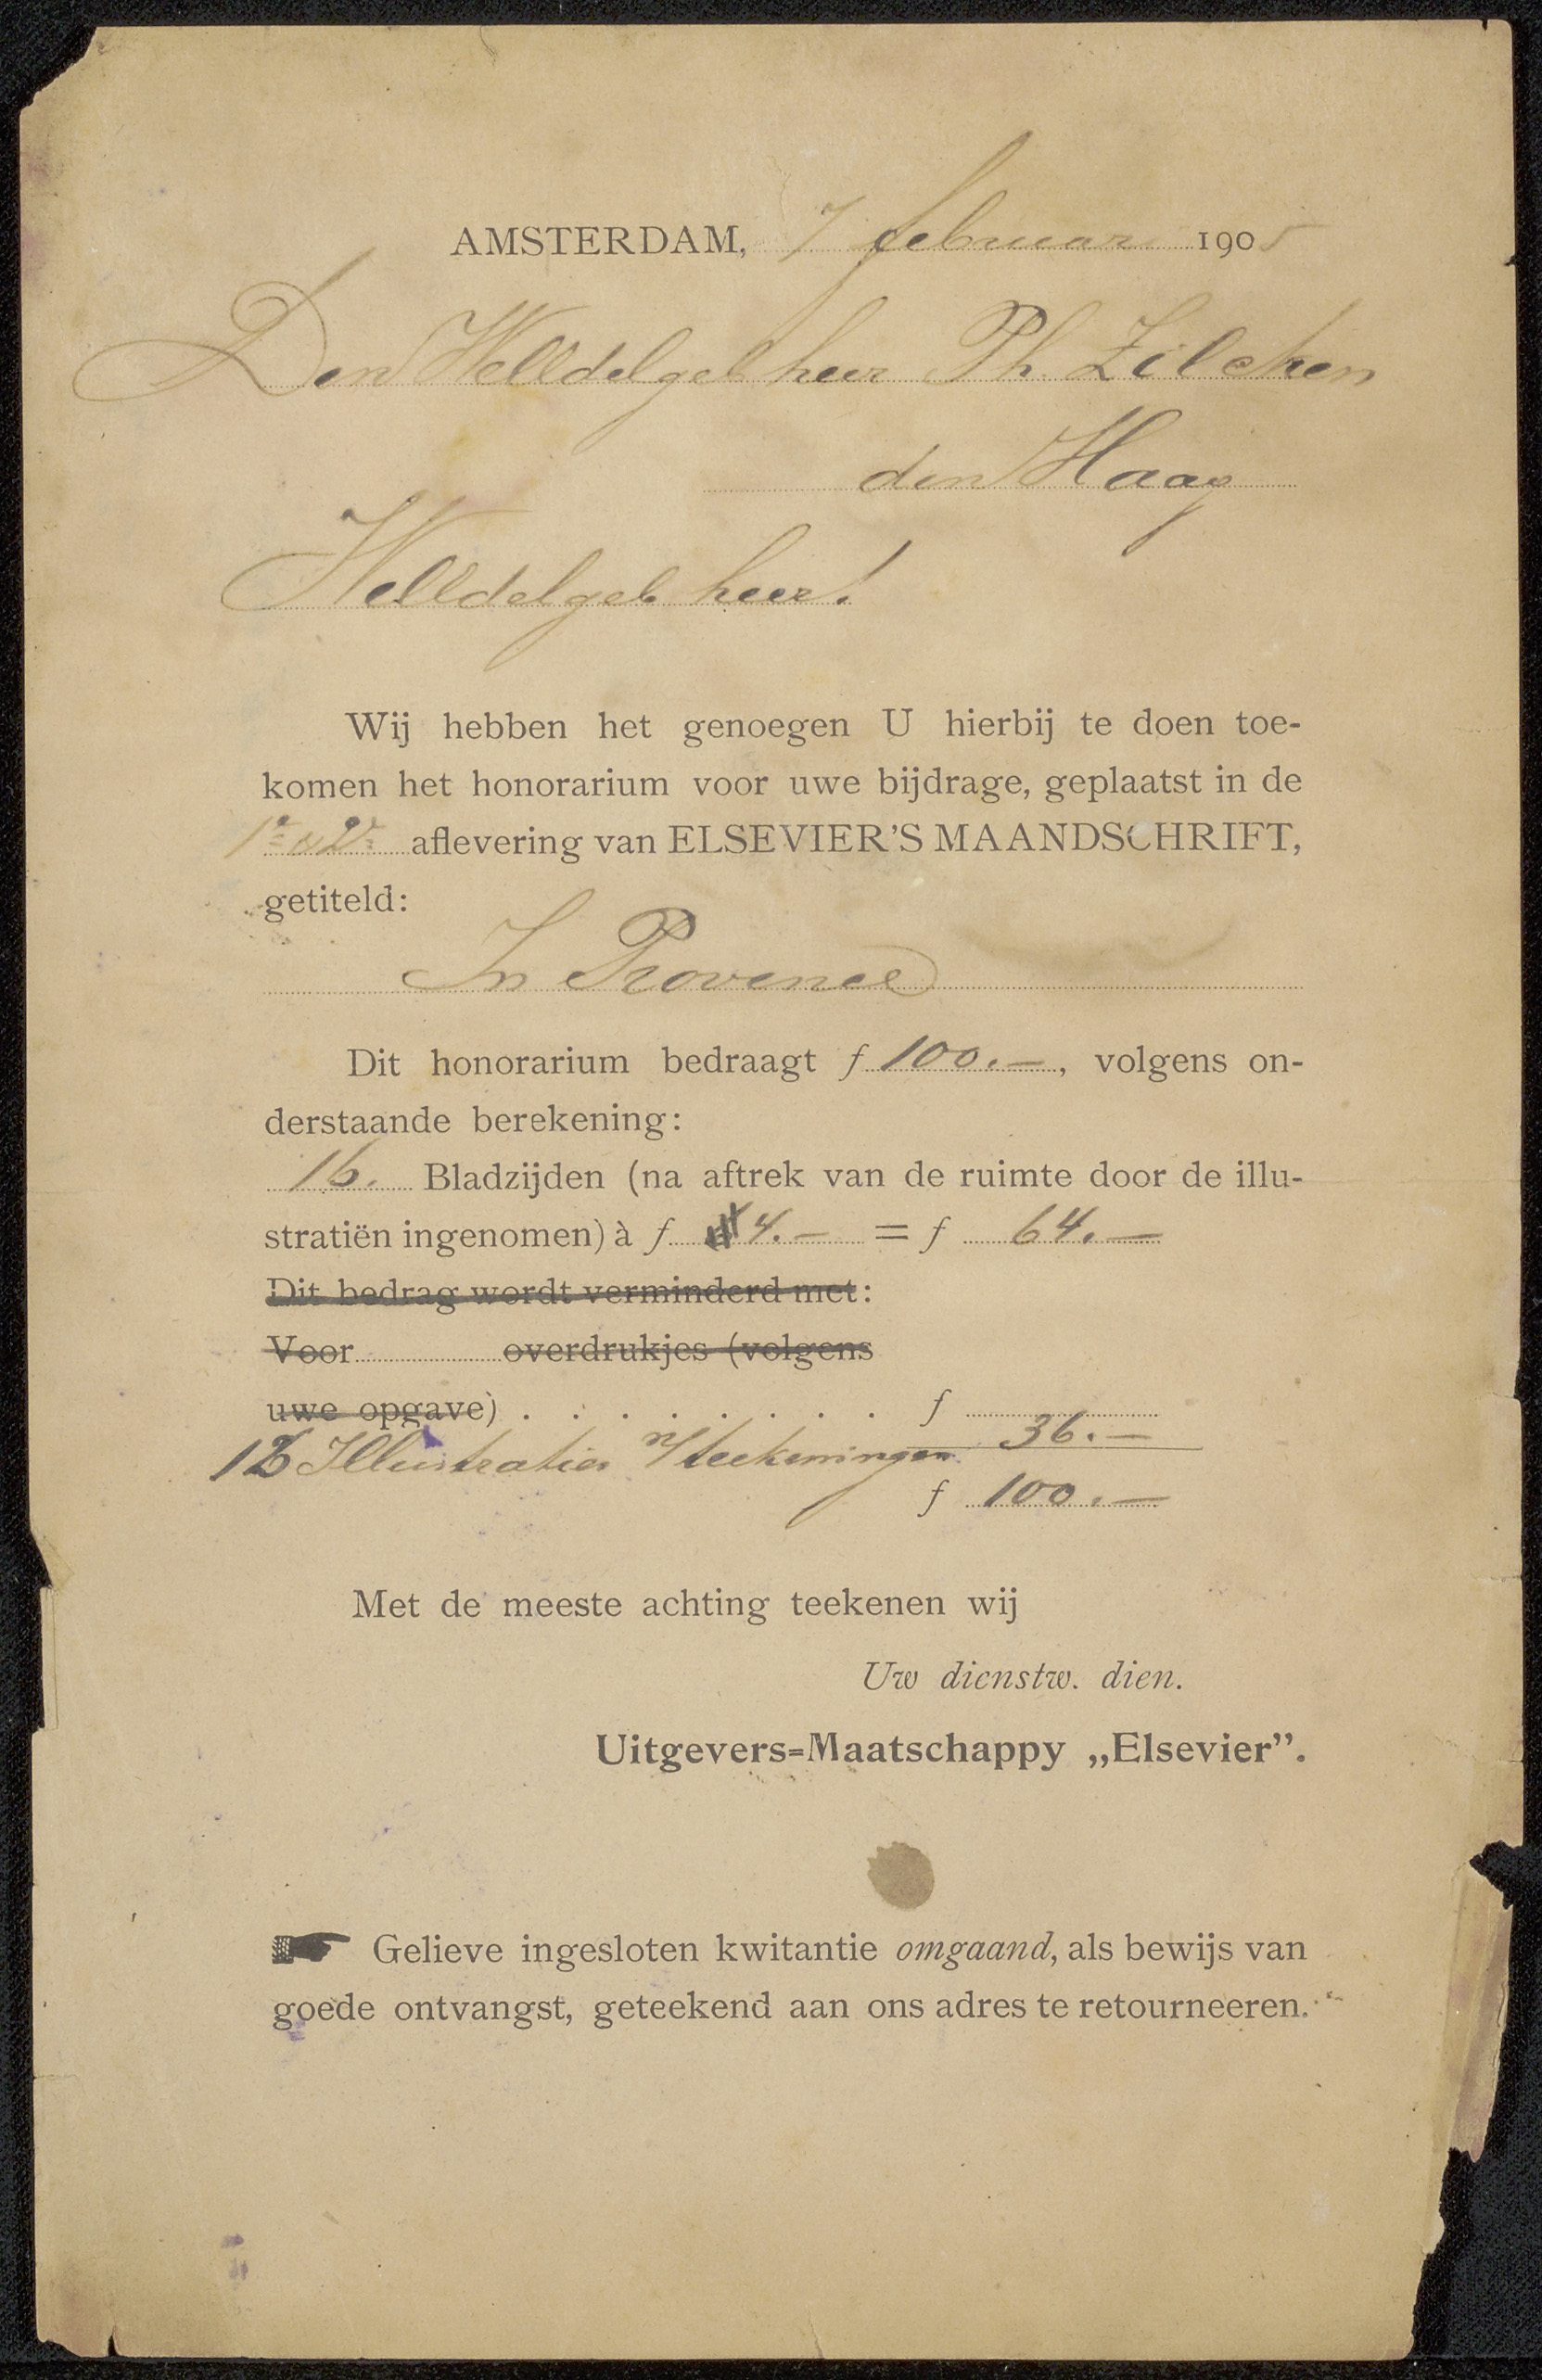 AMSTERDAM, 7 februari 1905
Den WelEdelgeb heer Ph. Zilcken
den Haag
WelEdelgeb heer!
Wij hebben het genoegen U hierbij te doen toe-
komen het honorarium voor uwe bijdrage, geplaatst in de
1e a 2e aflevering van ELSEVIER'S MAANDSCHRIFT,
getiteld:
In Provence
Dit honorarium bedraagt f 100.—, volgens on-
derstaande berekening:
16. Bladzijden (na aftrek van de ruimte door de illu-
stratiën ingenomen) à f 4.— = f 64.—
Dit bedrag wordt verminderd met:
Voor overdrukjes (volgens
uwe opgave) . . . . . . . . f
12 Illustraties n/ teekeningen 36.—
f 100.—
Met de meeste achting teekenen wij
Uw dienstw. dien.
Uitgevers=Maatschappy „Elsevier”.
☛ Gelieve ingesloten kwitantie omgaand, als bewijs van
goede ontvangst, geteekend aan ons adres te retourneeren.